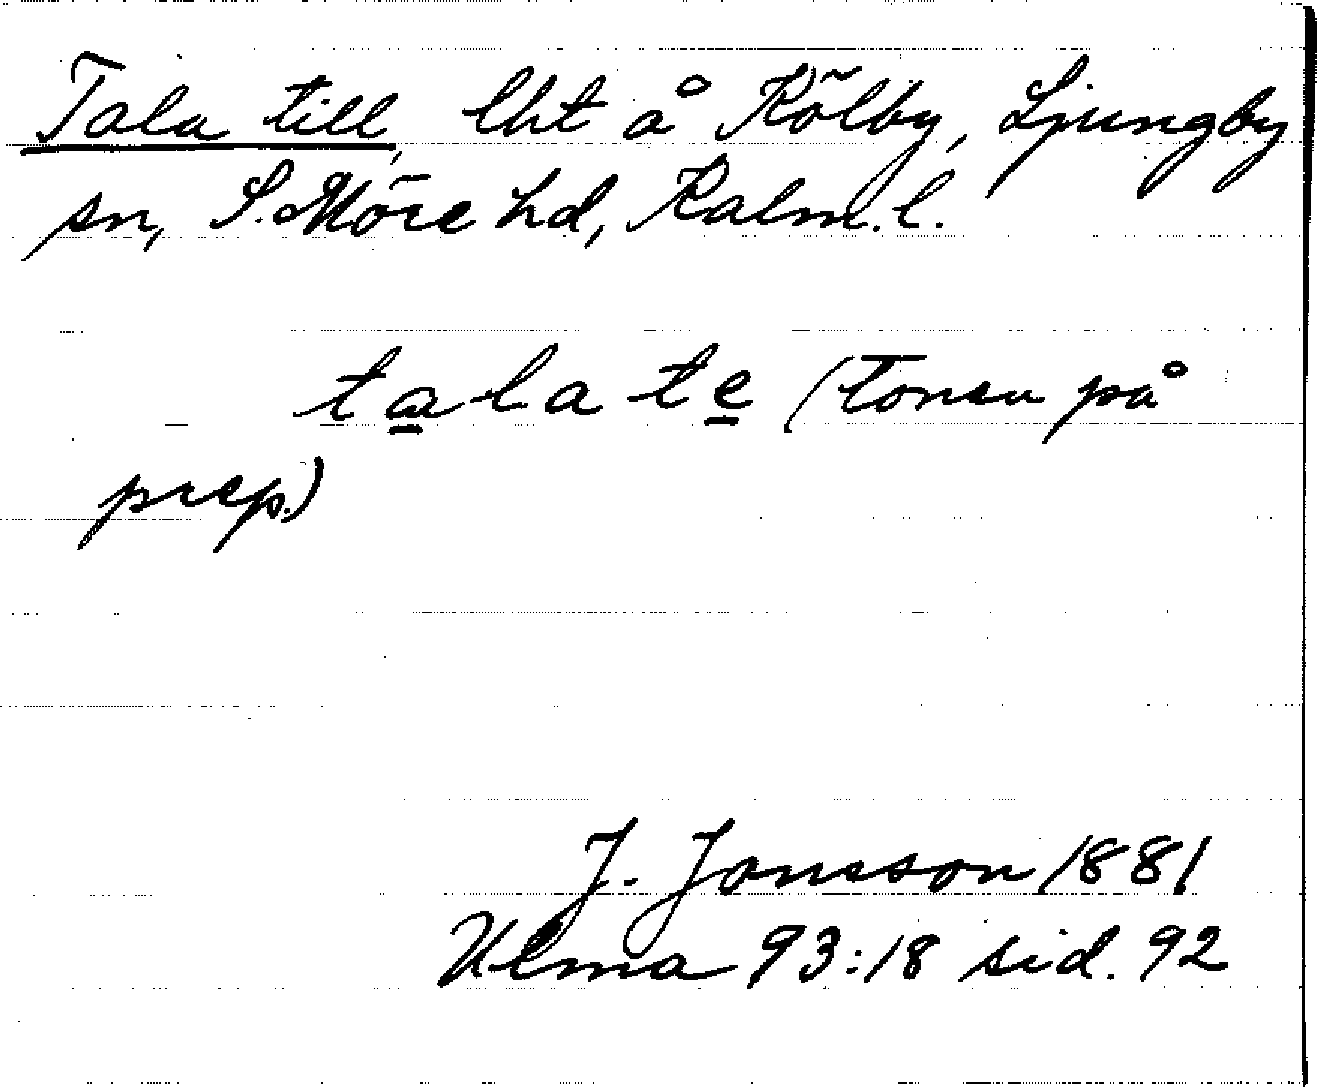 Tala till, lht å Kölby, Ljungby
sn, S. Möre hd, Kalm. l.
tala te (Tonen på
prep.)
J. Jonsson 1881
Ulma 93:18 sid. 92